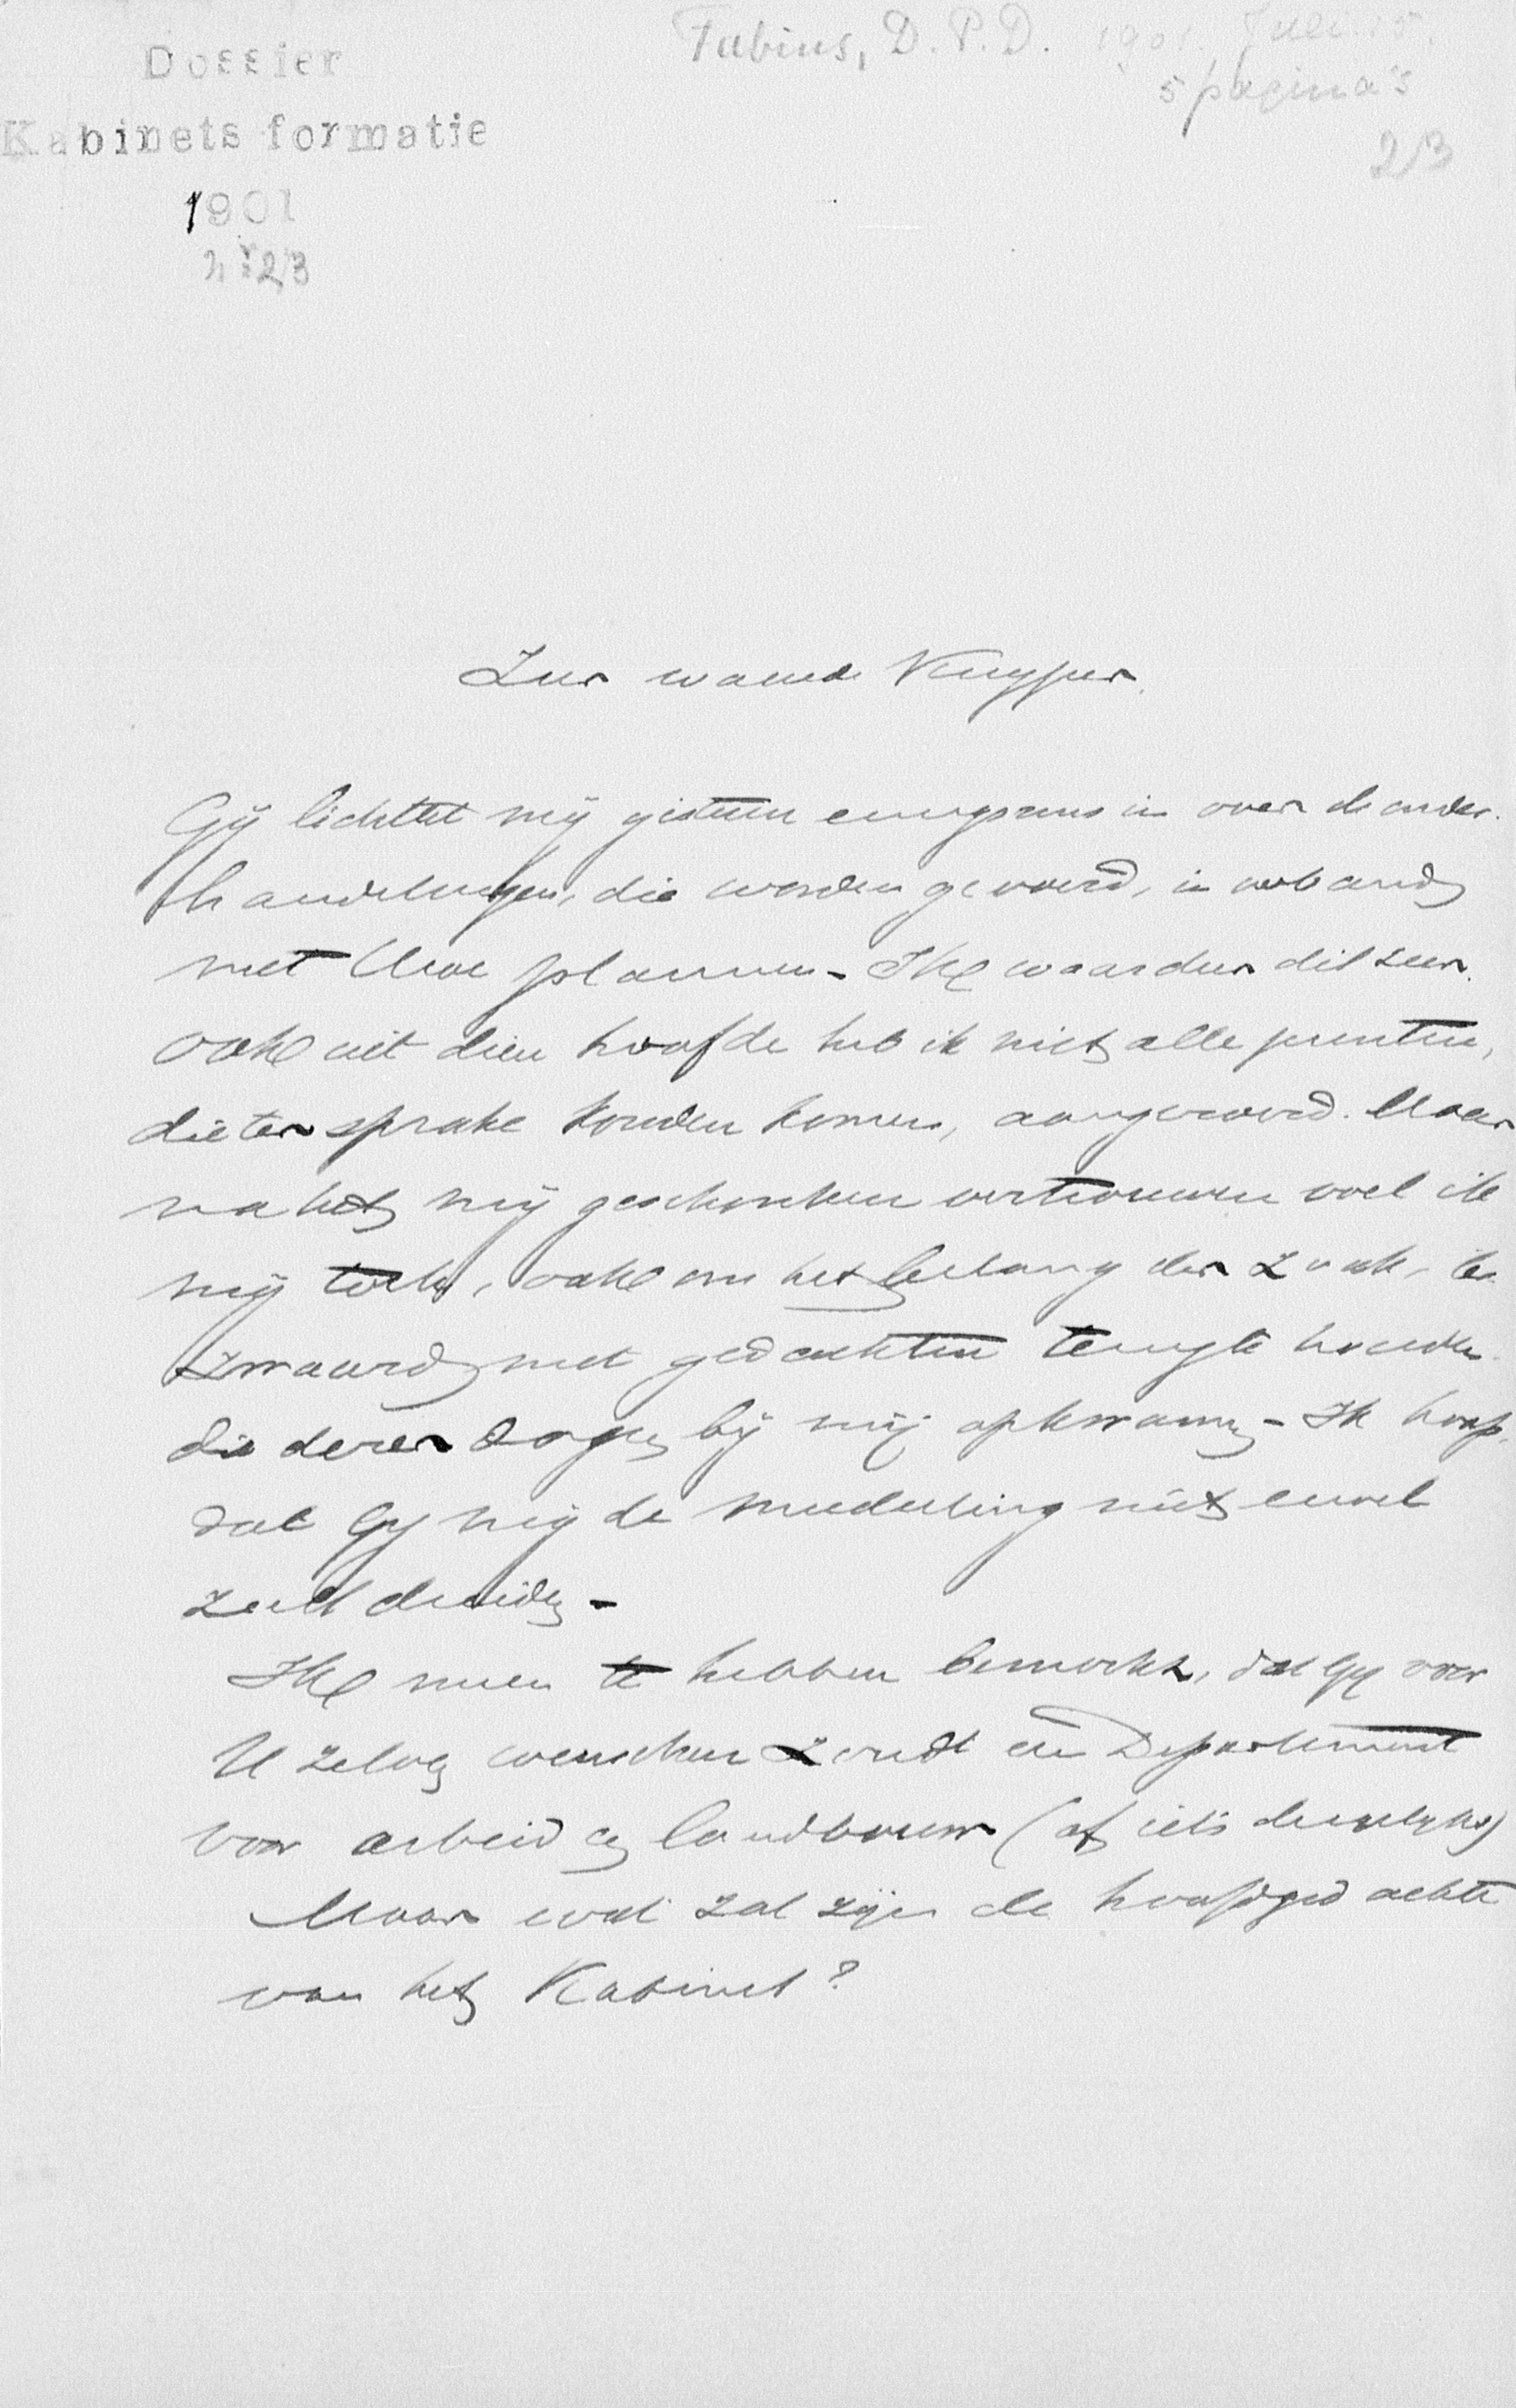 Dossier
Kabinets formatie
1901
nr 23
Fabius, D.P.D. 1901 Juli 15.
5 pagina's
23
Zeer waarde Kuyper.
Gij lichttet mij gisteren eenigszins in over de onder-
handelingen, die worden gevoerd, in verband
met Uwe plannen - Ik waardeer dit zeer.
Ook uit dien hoofde heb ik niet alle punten,
die ter sprake konden komen, aangeroerd. Maar
na het mij geschonken vertrouwen voel ik
mij toch, ook om het belang der zaak, be-
zwaard met gedachten terug te houden
die dezer dagen bij mij opkwamen - Ik hoop,
dat Gij mij de mededeeling niet euvel
zult duiden -
Ik meen te hebben bemerkt, dat Gij voor
U zelven wenschen zoudt een Departement
voor arbeid en landbouw (of iets dergelijks)
Maar wat zal zijn de hoofdgedachte
van het Kabinet?